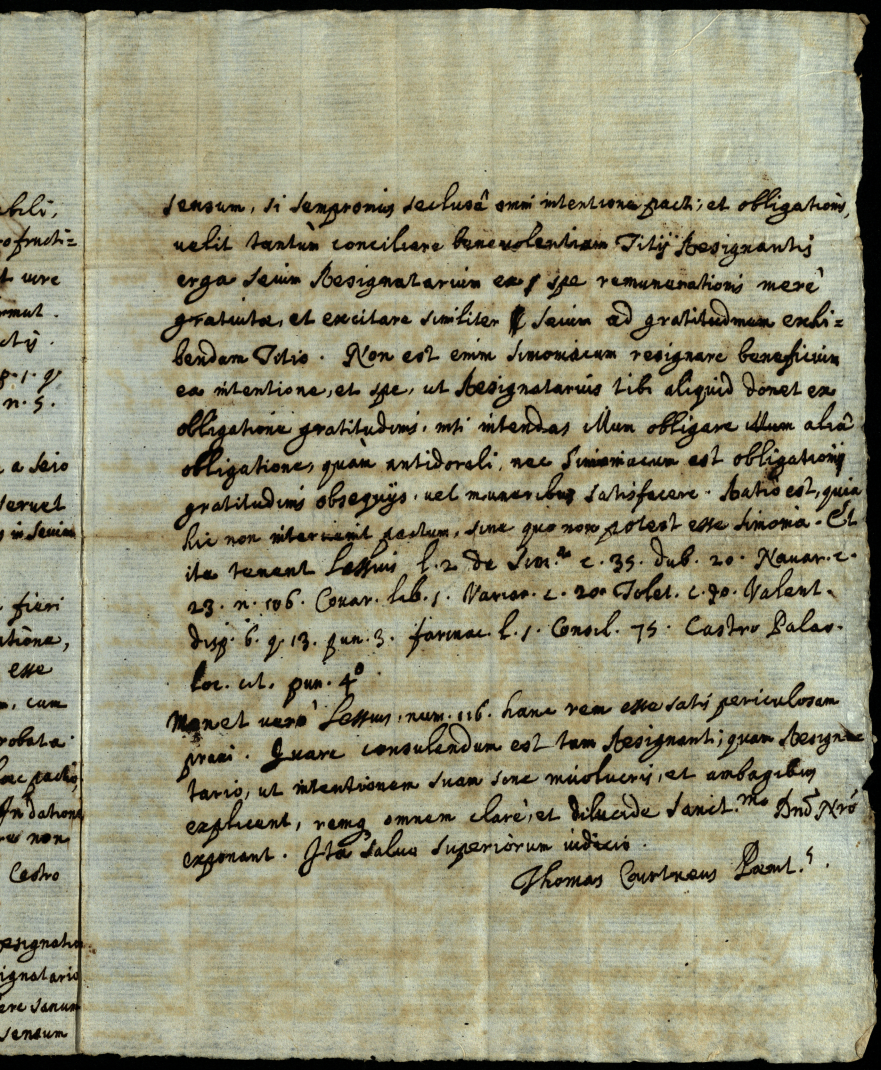 abili,
fructi=
t vere
rmut.
ctij.
p. 1. q
n. 5.
a seio
servet
s in Seium
fieri
atione,
esse
cum
robata
hac pactio,
In datione
non
Castro
esignatio
ignatario
ere sanum
sensum
sensum, si Sempronius seclusâ omni intentione pacti, et obligationis,
velit tantùm conciliare benevolentiam Titij Resignantis
erga Seium Resignatarium ex spe remunerationis merè
gratuitæ, et excitare similiter Seium ad gratitudinem exhi=
bendam Titio. Non est enim simoniacum resignare beneficium
ea intentione, et spe, ut Resignatarius tibi aliquid donet ex
obligatione gratitudinis, intendas illum obligare illum aliâ
obligatione, quàm antidorali, nec simoniacum est obligationi
gratitudinis obsequijs, vel muneribus satisfacere. Ratio est, quia
hic non intervenit pactum, sine quo non potest esse simonia. Et
ita tenent Lessius l. 2 de Sim.ª c. 35. dub. 20. Navar. c.
23. n. 106. Covar. lib. 1. Variar. c. 20. Tolet. c. 90. Valent.
disp. 6. q 13. pun. 3. farinac. l. 1. Consil. 75. Castro Palao.
loc. cit. pun. 4º
Monet verò Lessius, num. 116. hanc rem esse satis periculosam
praxi. Quare consulendum est tam Resignanti, quam Resigna
tario, ut intentionem suam sine involucris, et ambagibus
explicent, remq omnem clarè, et dilucidè Sanct.mo Dnõ Nrõ
exponant. Ita salvo superiorum iudicio.
Thomas Courtneus Pænit.s.